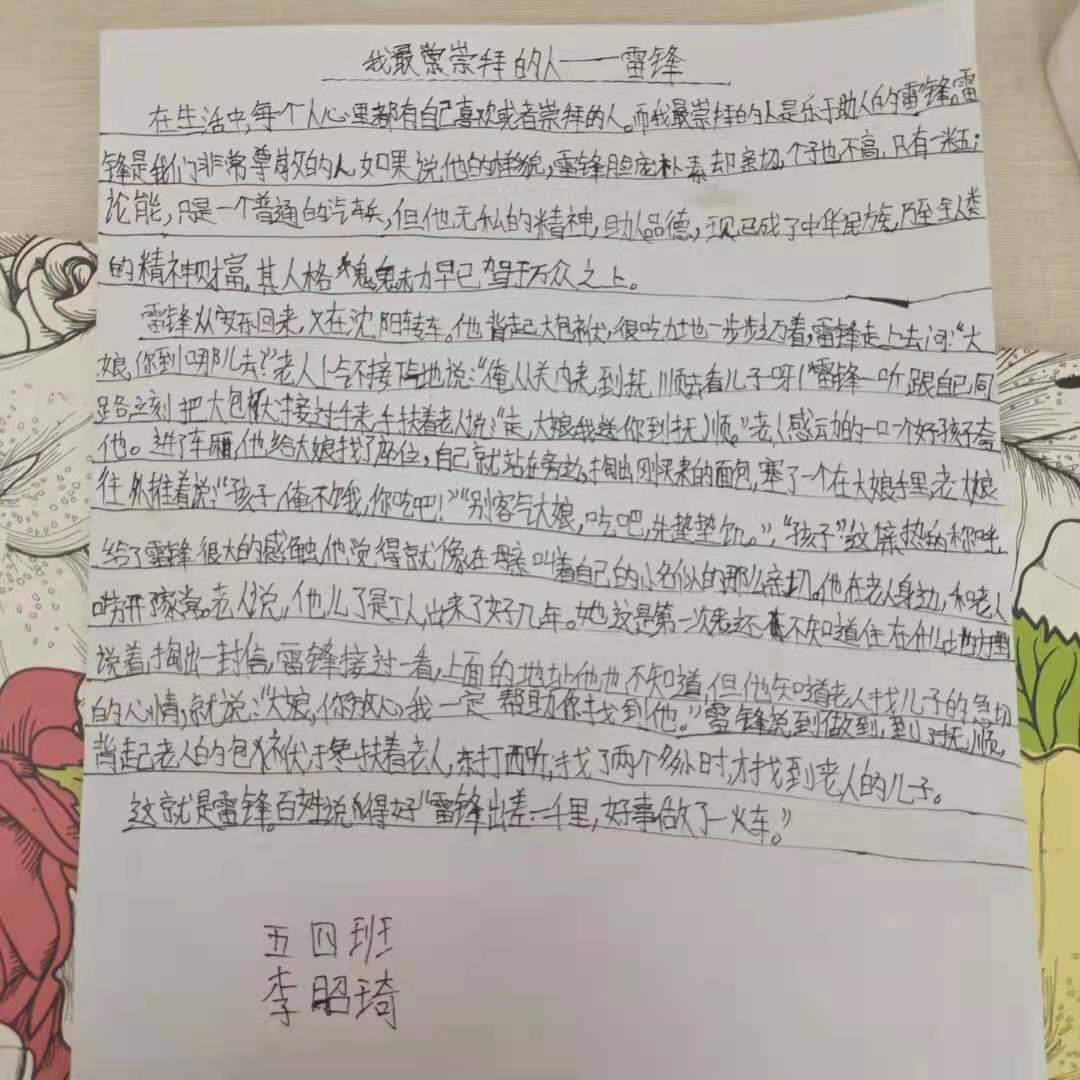 我最崇拜的人——雷锋
在生活中,每个人心里都有自己喜欢或者崇拜的人。而我最崇拜的人是乐于助人的雷锋。雷
锋是我们非常尊敬的人,如果说他的样貌,雷锋脸庞朴素却亲切,个子也不高,只有一米五;
论能,只是一个普通的汽车兵,但他无私的精神,助人品德,现已成了中华民族,乃至全人类
的精神财富,其人格魅力早已驾于万众之上。
雷锋从安东回来,又在沈阳转车。他背起大包袱,很吃力地一步步迈着,雷锋走上去问:“大
娘,你到哪儿去?”老人上气不接下气地说:“俺从关内来,到抚顺去看儿子呀!”雷锋一听跟自己同
路,立刻把大包袱接过手来,手扶着老人说:“走,大娘,我送你到抚顺。”老人感动的一口一个好孩子夸
他。进了车厢,他给大娘找了座位,自己就站在旁边,掏出刚买来的面包,塞了一个在大娘手里,老大娘
往外推着说:“孩子,俺不饿,你吃吧!”“别客气大娘,吃吧,先垫垫饥。”,“孩子”这亲热的称呼,
给了雷锋很大的感触,他觉得就像在母亲叫着自己的小名似的那么亲切。他在老人身边,和老人
唠开了家常。老人说,他儿子是工人,出来了好几年。她这是第一次来,还不知道住在什么地方哩
说着,掏出一封信,雷锋接过一看,上面的地址他也不知道,但他知道老人找儿子的急切
的心情,就说:“大娘,你放心,我一定帮助你找到他。”雷锋说到做到,到了抚顺,
背起老人的包袱,手搀扶着老人,东打西听,找了两个多小时,才找到老人的儿子。
这就是雷锋。百姓说得好“雷锋出差一千里,好事做了一火车。”
五四班
李昭琦